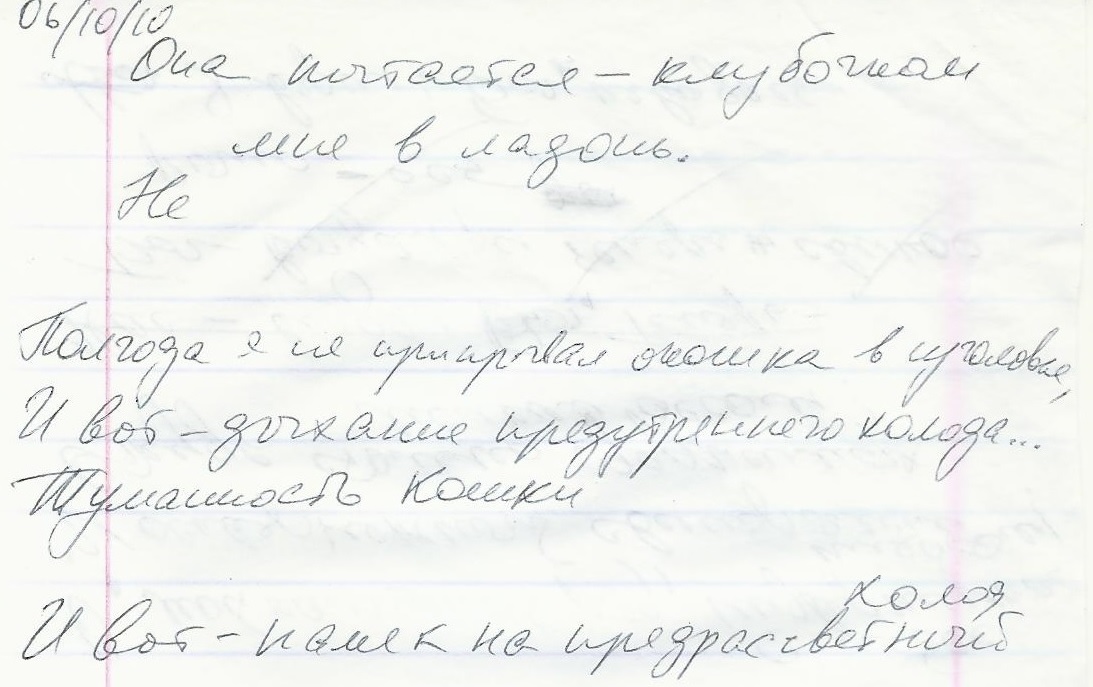 06/10/10
Она пытается – клубочком
мне в ладонь.
Не
Полгода я не прикрывал окошка в изголовье,
И вот – дыхание предутреннего холода...
Туманность Кошки
холод
И вот – намек на предрассветный